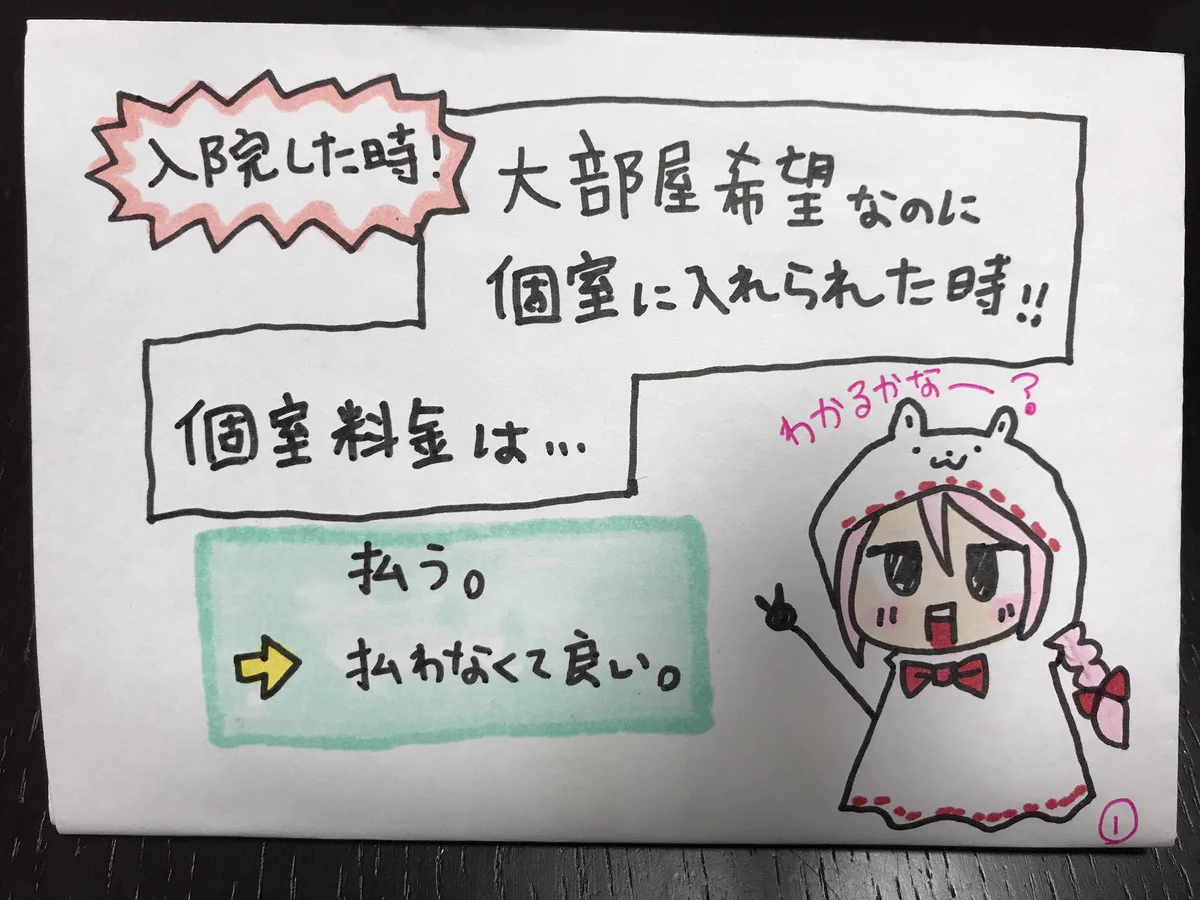 入院した時!
大部屋希望なのに
個室に入れられた時!!
個室料金は…
わかるかなー?
払う。
➡ 払わなくて良い。
①